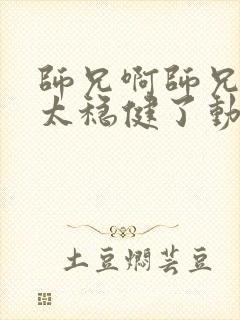 師兄啊師兄
太穩健了動
土豆燜芸豆